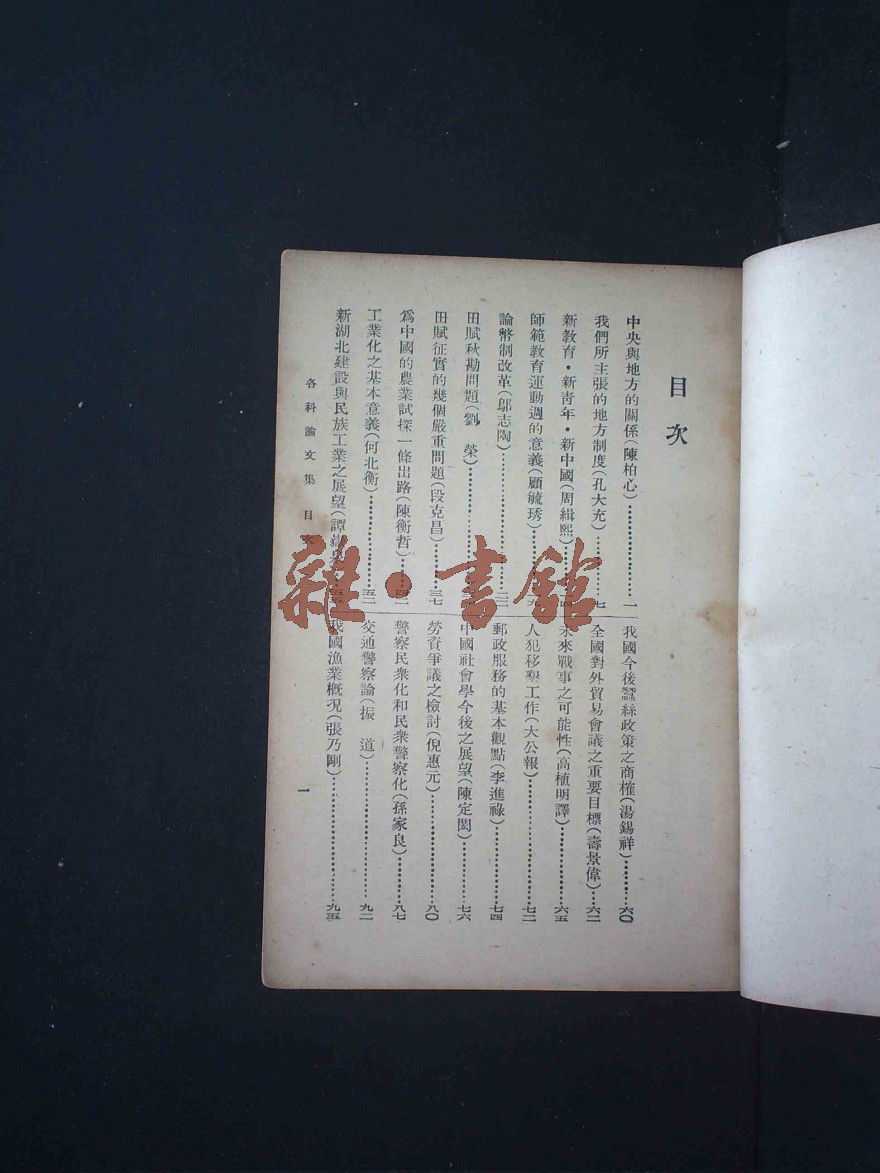 目次
中央與地方的關係(陳柏心)…………一
我們所主張的地方制度(孔大充)…………七
新敎育·新靑年·新中國(周緝熙)…………四
師範敎育運動週的意義(顧毓琇)…………九
論幣制改革(鄔志陶)…………二二
田賦秋勘問題(劉 榮)…………
田賦征實的幾個嚴重問題(段克昌)…………三七
爲中國的農業試探一條出路(陳衡哲)…………四二
工業化之基本意義(何北衡)…………五二
新湖北建設與民族工業之展望(譚
我國今後蠶絲政策之商榷(湯錫祥)…………六〇
全國對外貿易會議之重要目標(壽景偉)…………六二
未來戰事之可能性(高植明譯)…………六五
人犯移墾工作(大公報)…………七二
郵政服務的基本觀點(李進祿)…………七四
中國社會學今後之展望(陳定閎)…………七六
勞資爭議之檢討(倪惠元)…………八〇
警察民衆化和民衆警察化(孫家良)…………八七
交通警察論(振 道)…………九二
我國漁業槪況(張乃剛)…………九五
各科論文集 目次
一
雜·書館